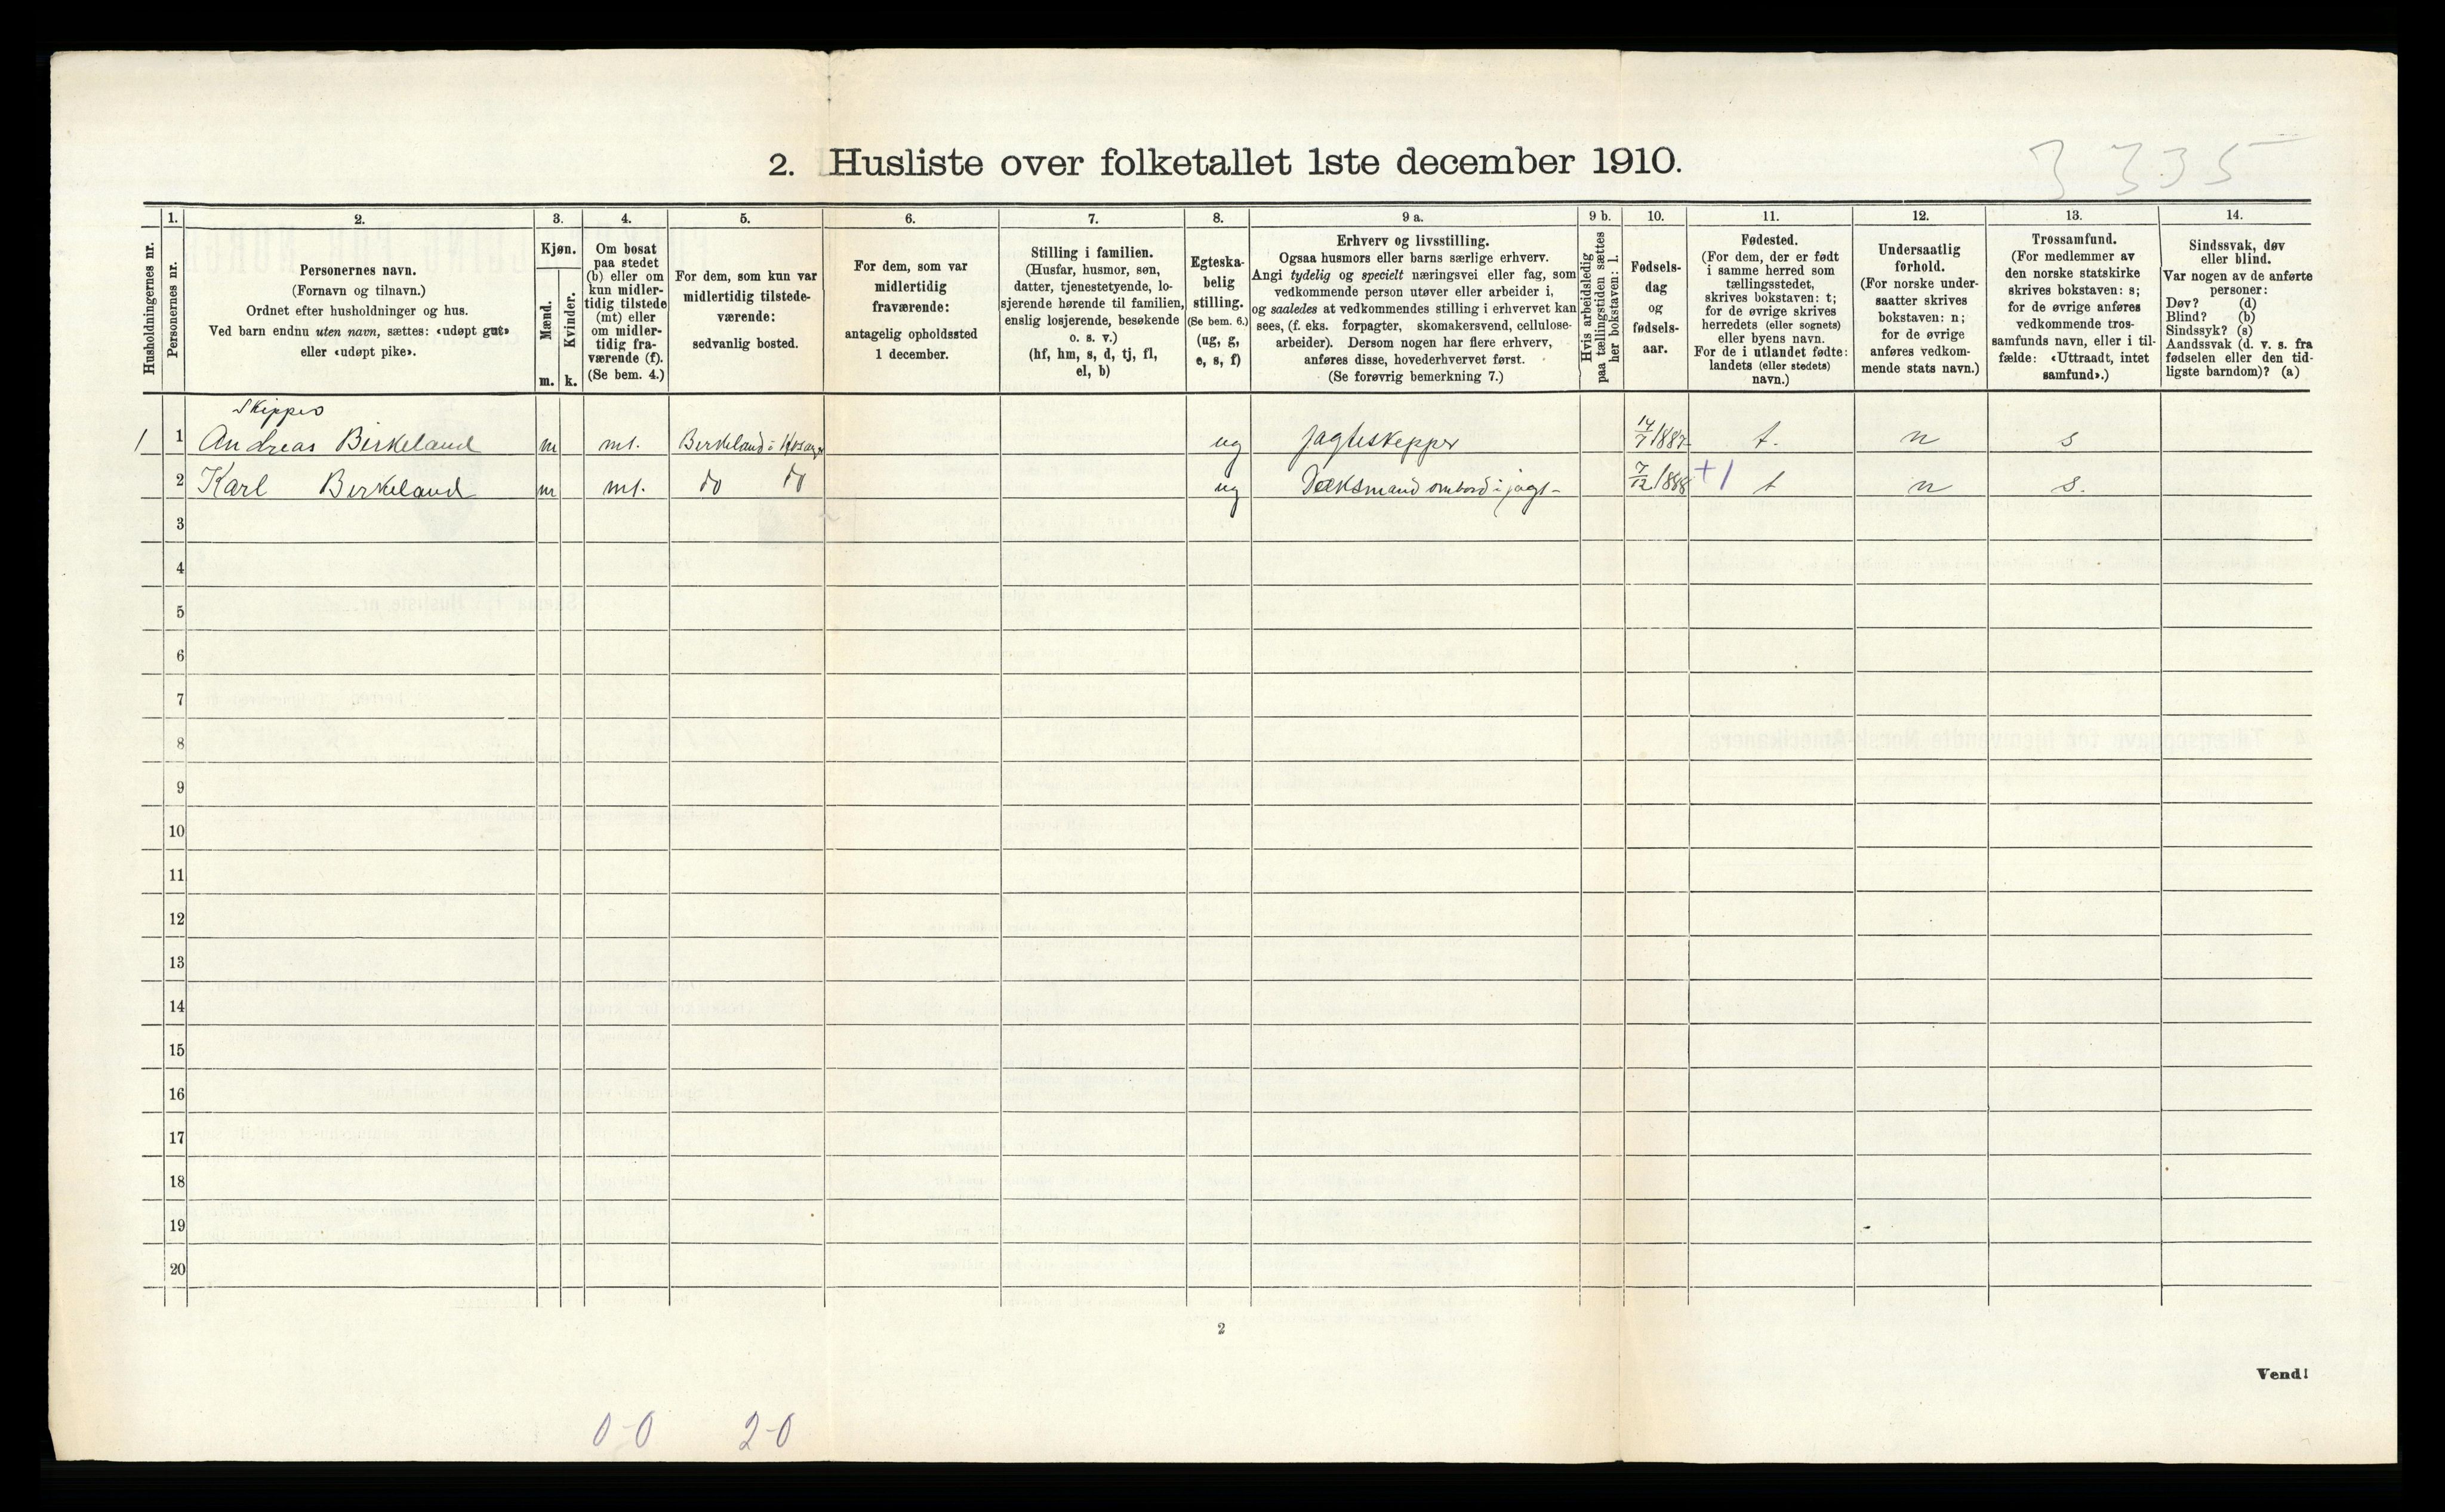 3 335
2. Husliste over folketallet 1ste december 1910.
Husholdningernes nr.
1.
Personernes nr.
2.
Personernes navn.
(Fornavn og tilnavn.)
Ordnet efter husholdninger og hus.
Ved barn endnu uten navn, sættes: «udøpt gut»
eller «udøpt pike».
3.
Kjøn.
Mænd.
Kvinder.
m. k.
4.
Om bosat
paa stedet
(b) eller om
kun midler-
tidig tilstede
(mt) eller
om midler-
tidig fra-
værende (f).
(Se bem. 4.)
5.
For dem, som kun var
midlertidig tilstede-
værende:
sedvanlig bosted.
6.
For dem, som var
midlertidig
fraværende:
antagelig opholdssted
1 december.
7.
Stilling i familien.
(Husfar, husmor, søn,
datter, tjenestetyende, lo-
sjerende hørende til familien,
enslig losjerende, besøkende
o. s. v.)
(hf, hm, s, d, tj, fl,
el, b)
8.
Egteska-
belig
stilling.
(Se bem. 6.)
(ug, g,
e, s, f)
9 a.
Erhverv og livsstilling.
Ogsaa husmors eller barns særlige erhverv.
Angi tydelig og specielt næringsvei eller fag, som
vedkommende person utøver eller arbeider i,
og saaledes at vedkommendes stilling i erhvervet kan
sees, (f. eks. forpagter, skomakersvend, cellulose-
arbeider). Dersom nogen har flere erhverv,
anføres disse, hovederhvervet først.
(Se forøvrig bemerkning 7.)
9 b.
Hvis arbeidsledig
paa tællingstiden sættes
her bokstaven: l.
10.
Fødsels-
dag
og
fødsels-
aar.
11.
Fødested.
(For dem, der er født
i samme herred som
tællingsstedet,
skrives bokstaven: t;
for de øvrige skrives
herredets (eller sognets)
eller byens navn.
For de i utlandet fødte:
landets (eller stedets)
navn.)
12.
Undersaatlig
forhold.
(For norske under-
saatter skrives
bokstaven: n;
for de øvrige
anføres vedkom-
mende stats navn.)
13.
Trossamfund.
(For medlemmer av
den norske statskirke
skrives bokstaven: s;
for de øvrige anføres
vedkommende tros-
samfunds navn, eller i til-
fælde: «Uttraadt, intet
samfund».)
14.
Sindssvak, døv
eller blind.
Var nogen av de anførte
personer:
Døv? (d)
Blind? (b)
Sindssyk? (s)
Aandssvak (d. v. s. fra
fødselen eller den tid-
ligste barndom)? (a)
Skipper
1 1 Andreas Birkeland m mt. Berkeland i ug Jagteskepper 14/7 1887 t. n s
2 Karl Berkeland m mt. do do ug Dæksmand ombord i jagt- 7/12 1888 +1 t n s.
3
4
5
6
7
8
9
10
11
12
13
14
15
16
17
18
19
20
2
Vend!
0-0 2-0